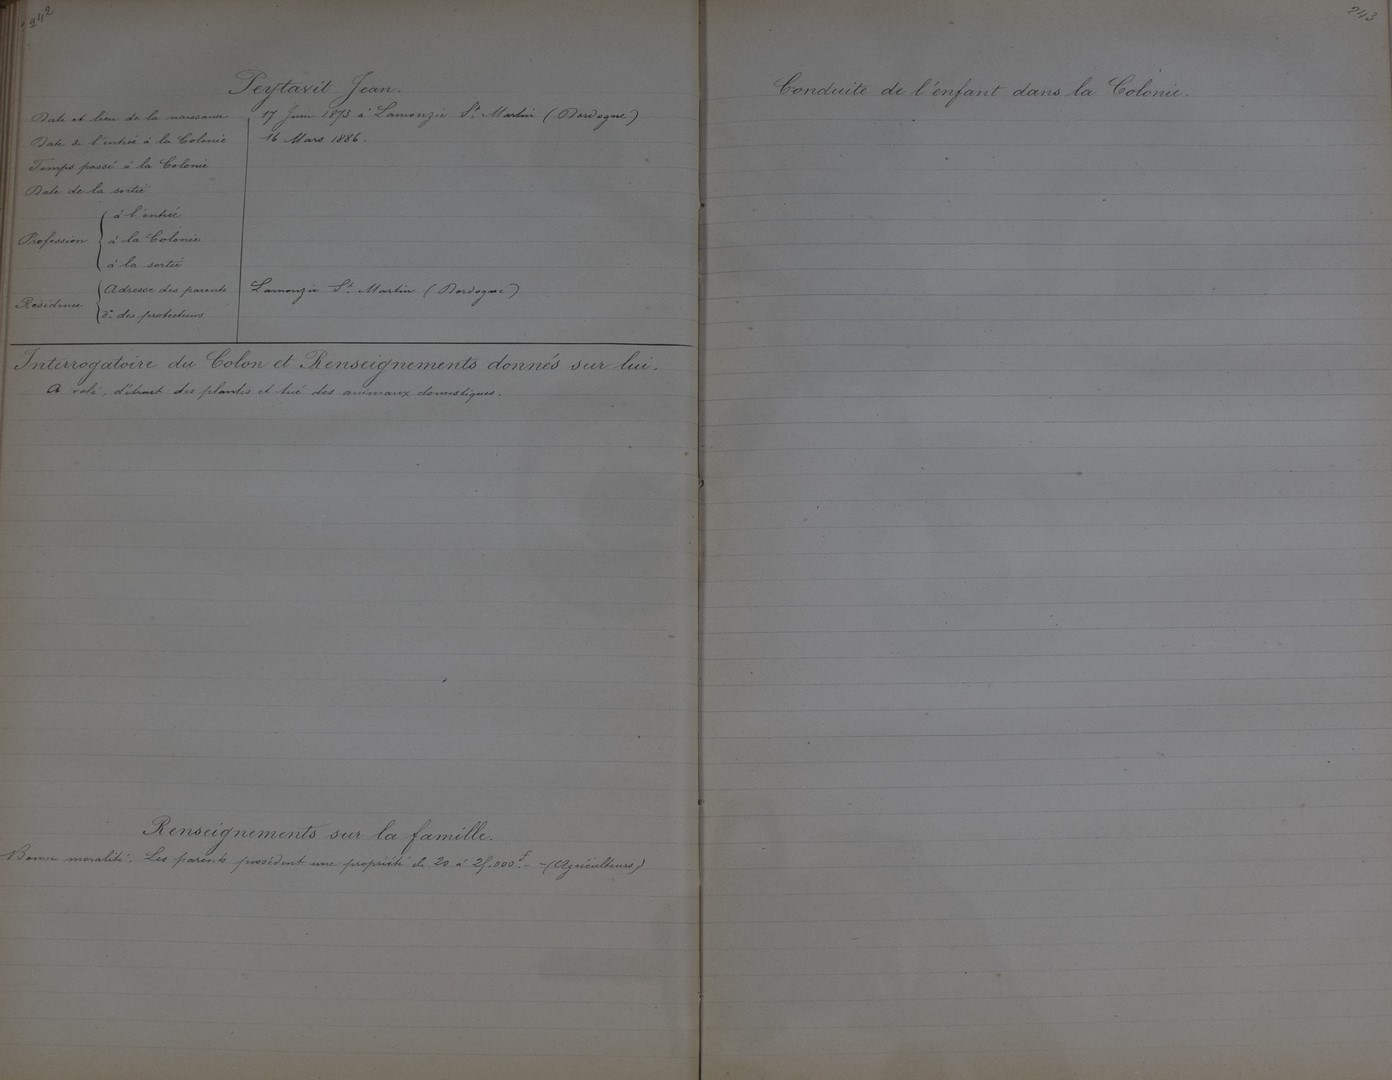 242
Peytavit Jean.
Date et lieu de la naissance 17 Juin 1873 à Lamonzie St. Martin (Dordogne)
Date de l'entrée à la Colonie 16 Mars 1886.
Temps passé à la Colonie
Date de la sortie
Profession
à l'entrée
à la Colonie
à la sortie
Résidence
Adresse des parents Lamonzie St. Martin (Dordogne)
do. des protecteurs
Interrogatoire du Colon et Renseignements donnés sur lui.
A volé, détruit des plantes et tué des animaux domestiques.
Renseignements sur la famille.
Bonne moralité. Les parents possèdent une propriété de 20 à 25.000f. - (Agriculteurs)
243
Conduite de l'enfant dans la Colonie.